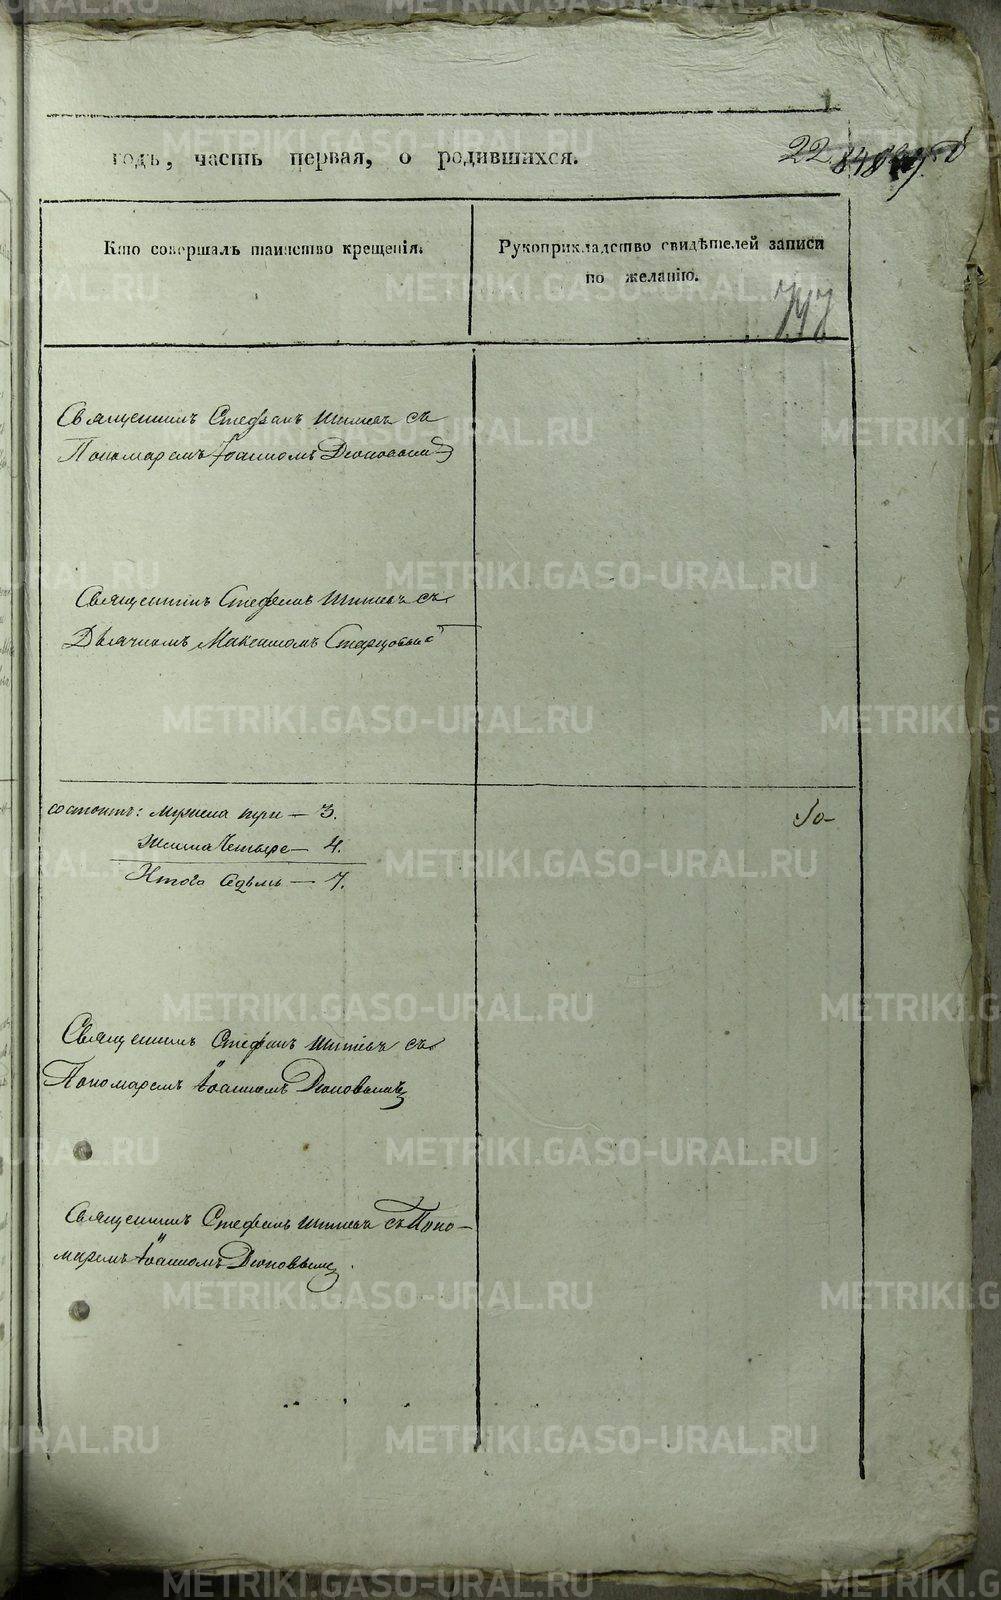 годъ, часть первая, о родившихся.
22
Кто совершалъ таинство крещенія.
Рукоприкладство свидѣтелей записи
по желанію.
747
Священникъ Стефанъ Шитевъ съ
Пономаремъ Іоанномъ
Священникъ Стефанъ Шитевъ съ
Дьячкомъ Максимомъ Старцовымъ
состоитъ: Мужеска три — 3.
Женска Четыре — 4.
Итого Седмь — 7.
Священникъ Стефанъ Шитевъ съ
Пономаремъ Іоанномъ
Священникъ Стефанъ Шитевъ съ Поно-
маремъ Іоанномъ
METRIKI.GASO-URAL.RU